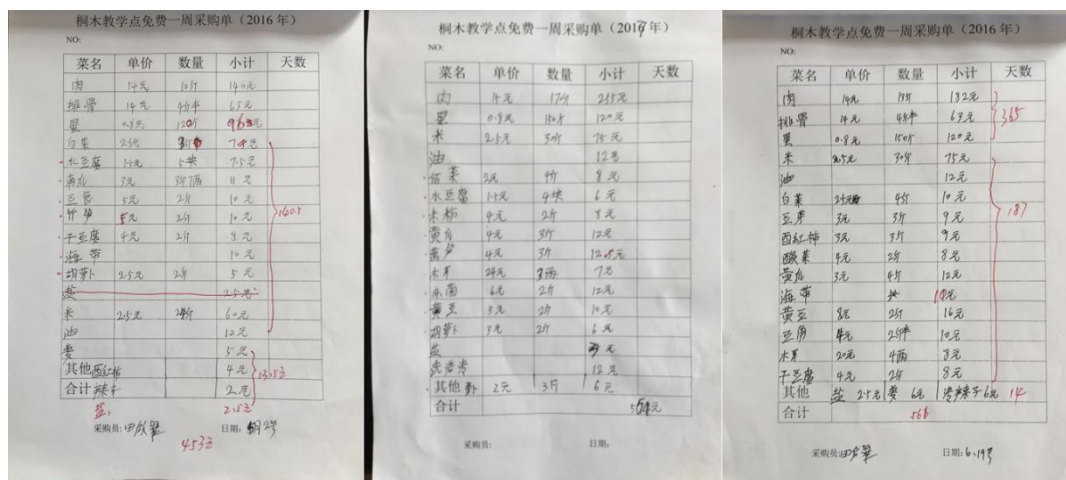 桐木教学点免费一周采购单（2016 年）
NO:
菜名 单价 数量 小计 天数
肉 14元 10斤 140元
排骨 14元 4斤半 63元
蛋 0.8元 120个 96元
白菜 2.5元 3斤 7.5元
水豆腐 1.5元 5块 7.5元
南瓜 3元 3斤7两 11元
豆食 5元 2斤 10元
竹笋 5元 2斤 10元
干豆腐 4元 2斤 8元
海带 10元
胡萝卜 2.5元 2斤 5元
盐 2.5元
米 2.5元 24斤 60元
油 12元
姜 5元
其他 西红柿 4元 13.5元
合计 辣子 2元
盐 2.5元
采购员: 日期:
453元
桐木教学点免费一周采购单（2017年）
NO:
菜名 单价 数量 小计 天数
肉 14元 17斤 255元
蛋 0.8元 150个 120元
米 2.5元 30斤 75元
油 12元
白菜 2元 4斤 8元
水豆腐 1.5元 4块 6元
4元 2斤 8元
黄瓜 4元 3斤 12元
莴笋 4元 3斤 12元
木耳 24元 3两 7元
6元 2斤 12元
黄豆 5元 2斤 10元
胡萝卜 3元 2斤 6元
盐
12元
其他 2元 3斤 6元
合计 564元
采购员: 日期:
桐木教学点免费一周采购单（2016 年）
NO:
菜名 单价 数量 小计 天数
肉 14元 13斤 182元
排骨 14元 4斤半 63元 365
蛋 0.8元 150个 120元
米 2.5元 30斤 75元
油 12元
白菜 4斤 10元
豆芽 3元 3斤 9元
西红柿 3元 3斤 9元 187
酸菜 4元 2斤 8元
黄瓜 3元 4斤 12元
海带 10元
黄豆 8元 2斤 16元
豆腐 4元 2斤半 10元
木耳 20元 4两 8元
干豆腐 4元 2斤 8元
其他 盐 2.5元 姜 6元 辣子 6元 14
合计 566
采购员: 日期: 6.19号